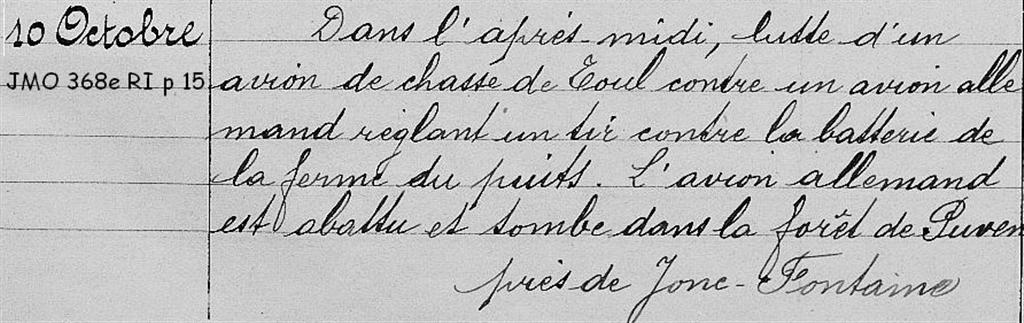 10 Octobre
JMO 368e RI p 15
Dans l'après-midi, lutte d'un
avion de chasse de Toul contre un avion alle
mand réglant un tir contre la batterie de
la ferme du puits. L'avion allemand
est abattu et tombe dans la forêt de Puven
près de Jonc-Fontaine